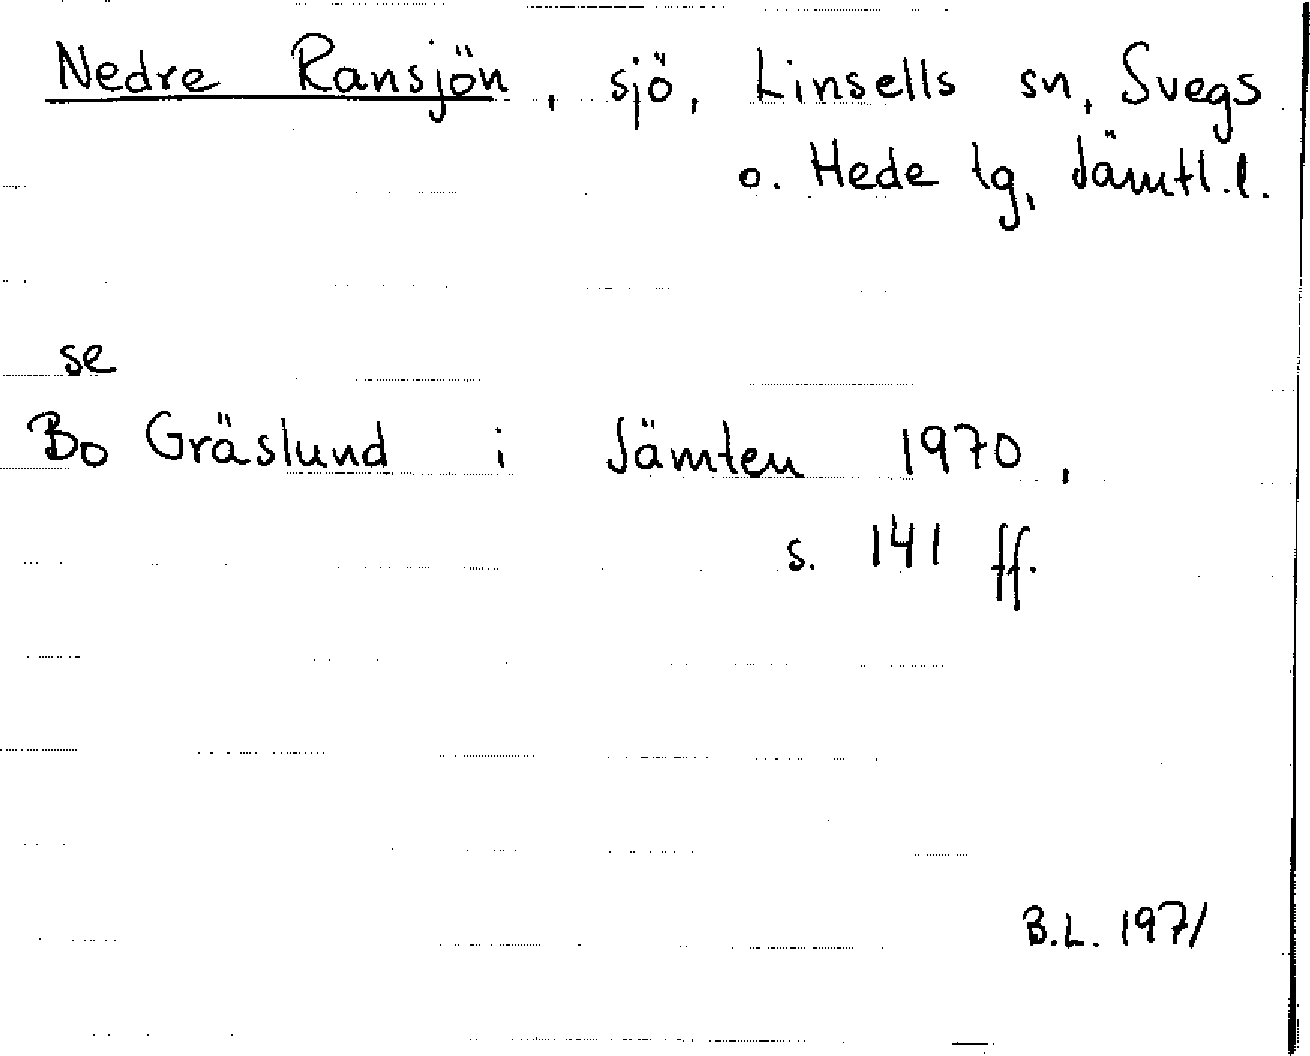 Nedre Ransjön, sjö, Linsells sn, Svegs
o. Hede tg, Jämtl.l.
se
Bo Gräslund i Jämten 1970,
s. 141 ff.
B.L. 1971